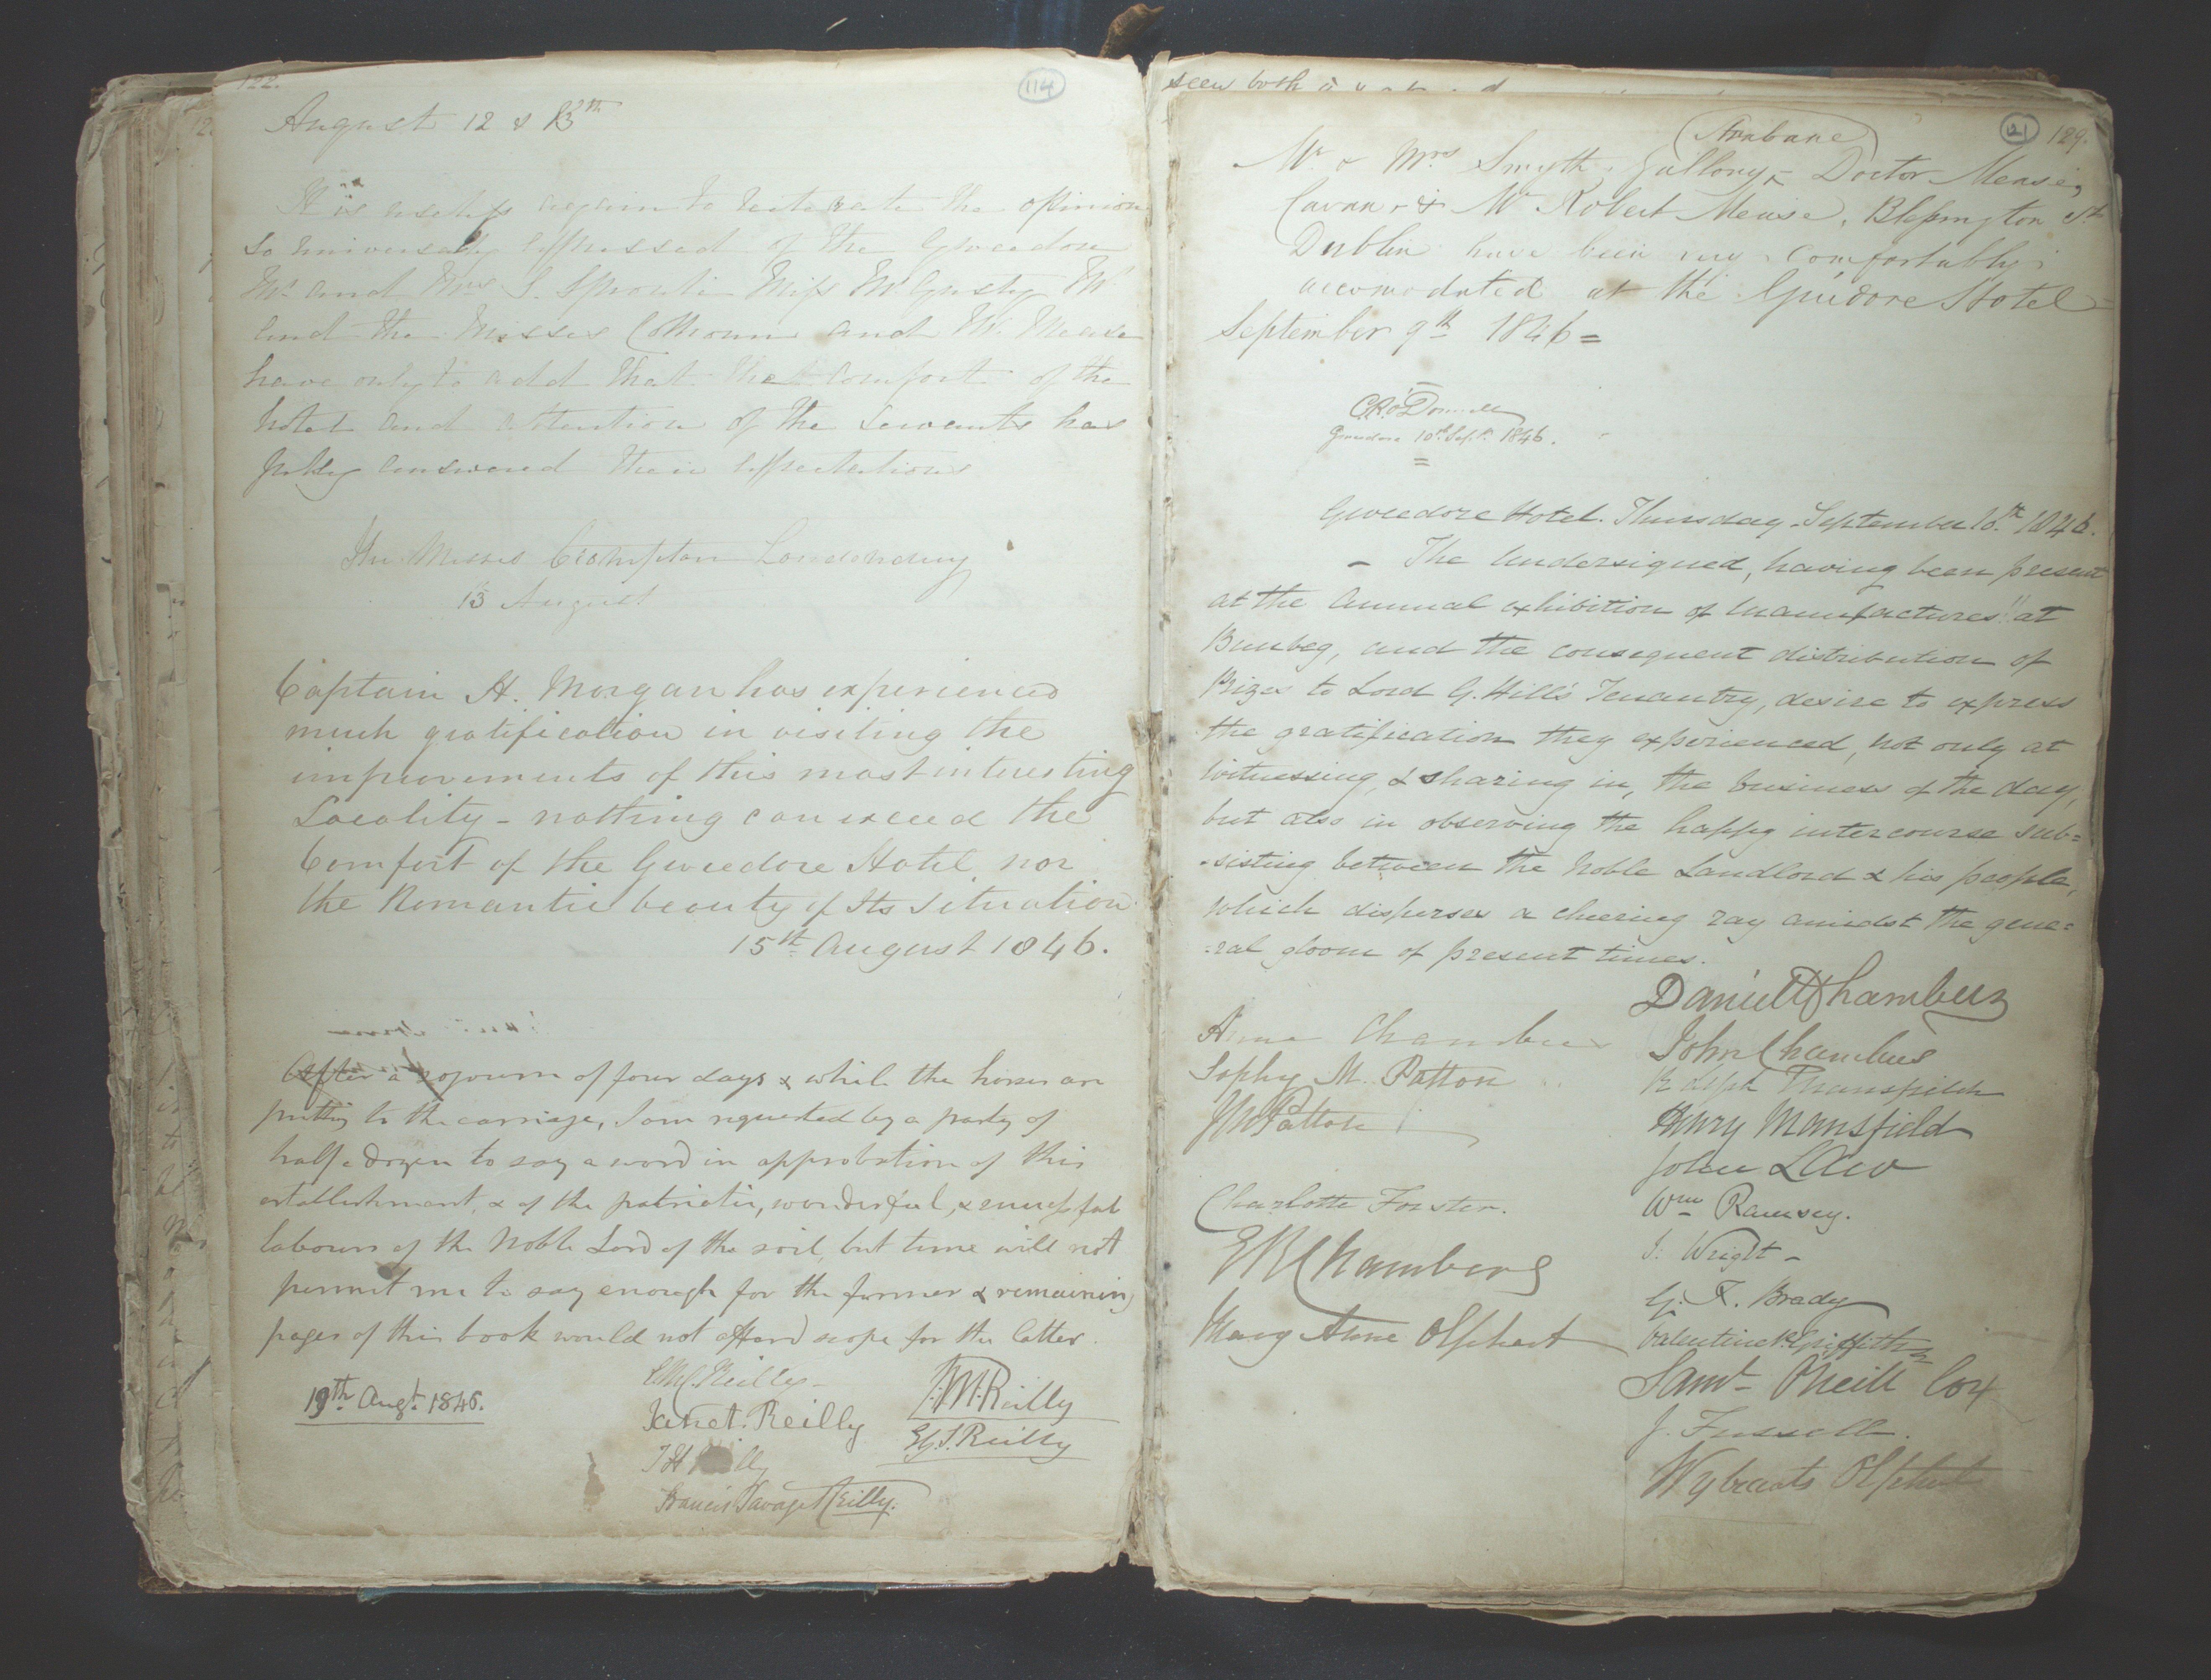 122.
114
August 12 & 13th
It is useless again to reiterate the opinion
so universally expressed of the Gweedore
Mr. and Mrs. J. Sproule Miss Mr
and the Misses Colhoun and Mr. Mease
have only to add that the comfort of the
hotel and attention of the servants has
fully answered their expectations
The Misses Crompton Londonderry
13 August
Captain H. Morgan has experienced
much gratification in visiting the
improvements of this most interesting
Locality - nothing can exceed the
Comfort of the Gweedore Hotel, nor
the Romantic beauty of Its Situation
15th August 1846.
After a sojourn of four days & while the horses are
putting to the carriage, I am requested by a party of
half a dozen to say a word in approbation of this
establishment, & of the patriotic, wonderful, & successful
labours of the Noble Lord of the soil, but time will not
permit me to say enough for the former & remaining
pages of this book would not afford scope for the latter.
19th Augt. 1846.
Reilly
Janet. Reilly
J. M. Reilly
E. G. S. Reilly
Francis Savage Reilly.
seen both
Strabane
121
129.
Mr. & Mrs. Smyth, Gallony & Doctor Mease,
Cavan, & Mr. Robert Mease, Blessington St.
Dublin have been very comfortably
accomodated at the Guidore Hotel
September 9th 1846 =
C.R. O'Donnell
Gweedore 10th Sept. 1846.
Gweedore Hotel. Thursday September 10th 1846.
- The Undersigned, having been present
at the annual exhibition of manufactures at
Bunbeg, and the consequent distribution of
Prizes to Lord G. Hill's Tenantry, desire to express
the gratification they experienced, not only at
witnessing, & sharing in, the business of the day,
but also in observing the happy intercourse sub=
-sisting between the Noble Landlord & his people,
which disperses a cheering ray amidst the gene=
-ral gloom of present times.
Daniel Chambers
Anne Chambers
John Chambers
Sophy M. Patton
Ralph Mansfield
J M Patton
Henry Mansfield
John Law
Charlotte Forster.
Wm Ramsey.
J. Wright -
E R Chambers
G. F. Brady
Mary Anne Olphert
Valentine P. Griffith
Saml. O'Neill Cox
J. Fussell.
Wybrants Olphert